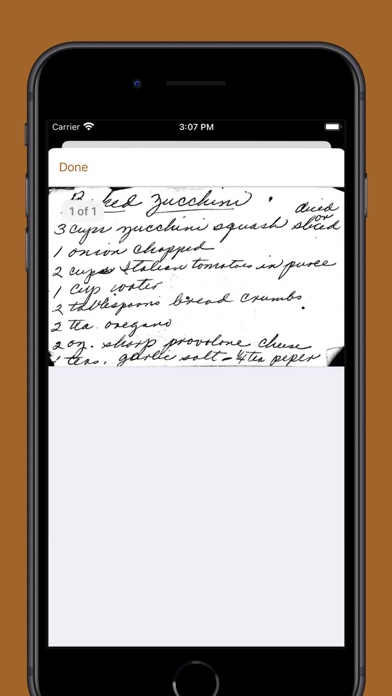 Carrier 3:07 PM
Done
1 of 1
ked Zucchini . diced
or
3 cups zucchini squash sliced
1 onion chopped
2 cups Italian tomatoes in puree
1 cup water
2 tablespoons bread crumbs
2 tea oregano
2 oz. sharp provolone cheese
1 teas. garlic salt - 1/4 tea peper